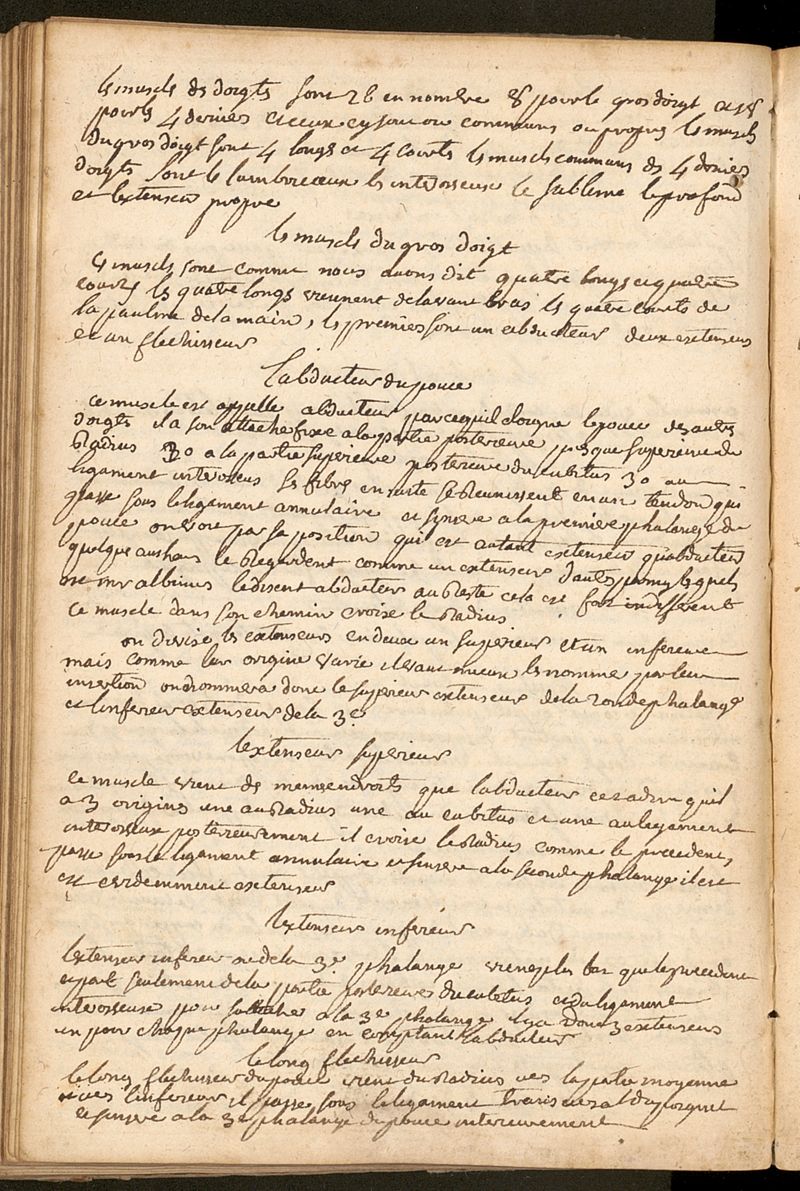 les muscls des doigts sont 26 en nombre 8 pour le gros doigt et 18
pour les 4 derniers et ceux cy sont ou communs ou propres les muscls
du gros doigt sont 4 longs et 4 courts les muscls communs des 4 derniers
doigts sont le lumbricaux les interosseux le sublime le profond
et lextenseur propre
les muscls du gros doigt
Ces muscls sont comme nous avons dit quatre longs et quatre
courts les quatre longs viennent de lavant bras les quatre courts de
la paulme de la main, les premiers sont un abducteur deux extenseurs
et un flechisseur
Labducteur du pouce
ce muscle est appelle abducteur parcequil eloigne le pouce des autres
doigts il a son attache fixe a la partie posterieure presque superieure du
Radius 2o a la partie superieure posterieure du cubitus 3o au
ligament interosseus ses fibres ensuite se Reunissent en un tendon qui
passe sous le ligament annulaire et sinsere a la premiere phalange du
pouce on voit par sa position quil est autant extenseur quabducteur
quelque autheurs le Regardent comme un extenseur dautres parmy lesquels
est mr albinus le disent abducteur au Reste cela est fort indifferent
ce muscle dans son chemin croise le Radius
on divise les extenseurs en deux un superieur et un inferieur
mais comme leur origine varie il vaut mieux les nommer par leur
insertion on nommera donc le superieur extenseur de la 2onde phalange
et linferieur extenseur de la 3e
lextenseur superieur
ce muscle vient des memes endroits que labducteur cest a dire quil
a 3 origines une au Radius une au cubitus et une au ligament
interosseux posterieurement il croise le Radius comme le precedent,
passe sous le ligament annulaire et sinsere a la seconde phalange il est
est evidemment extenseur
lextenseur inferieur
lextenseur inferieur ou de la 3e phalange vient plus bas que le precedent
et part seulement de la partie posterieure du cubitus et du ligament
interosseux pour sattacher a la 3e phalange il y a donc 3 extenseurs
un pour chaque phalange en comptant labducteur
le long flechisseur
le long flechisseur du pouce vient du Radius vers la partie moyenne
et vers linferieure il passe sous le ligament transversal du poignet
et sinsere a la 3e phalange du pouce interieurement